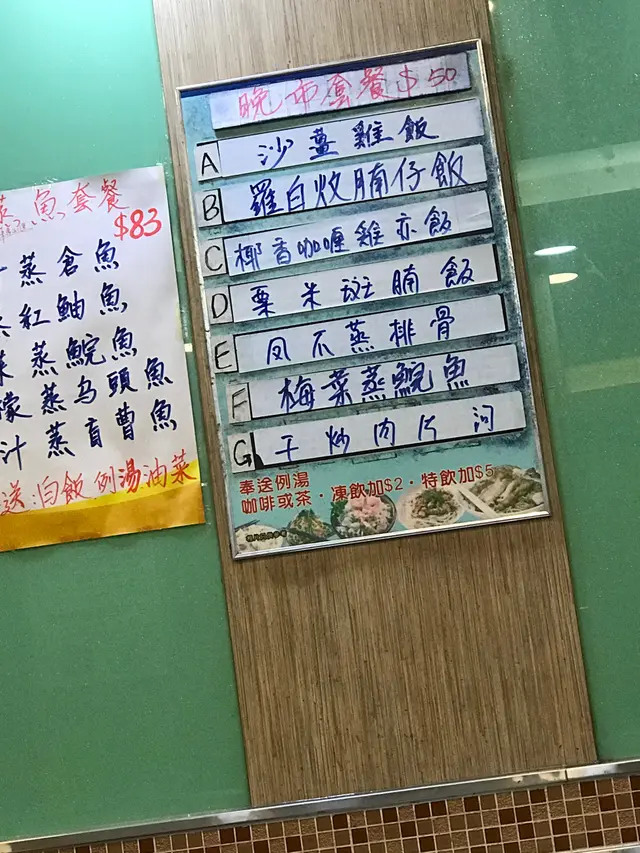 魚套餐
$83
蒸倉魚
紅鮋魚
蒸鯇魚
檬蒸乌頭魚
汁蒸盲曹魚
送:白飯例湯油菜
晚市套餐$50
A 沙薑雞飯
B 羅白炆腩仔飯
C 椰香咖喱雞亦飯
D 粟米斑腩飯
E 凤爪蒸排骨
F 梅菜蒸鯇魚
G 干炒肉片河
奉送例湯
咖啡或茶·凍飲加$2·特飲加$5